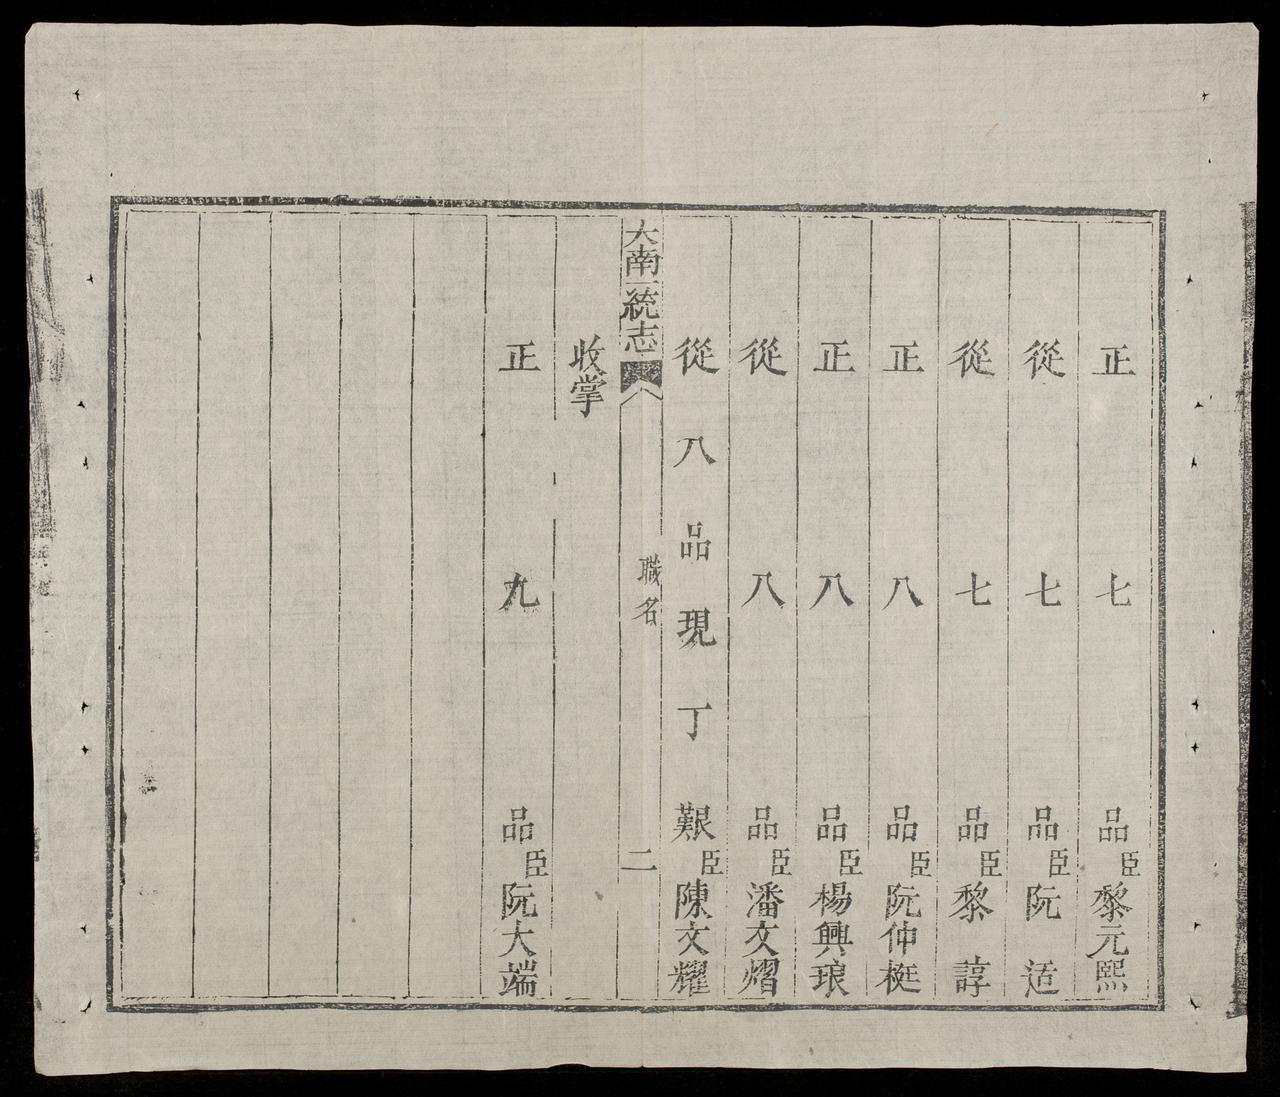 正七品臣黎元熙
從七品臣阮适
從七品臣黎諄
正八品臣阮仲梃
正八品臣楊興琅
從八品臣潘文熠
從八品現丁艱臣陳文耀
大南一統志
職名
二
收掌
正九品臣阮大端